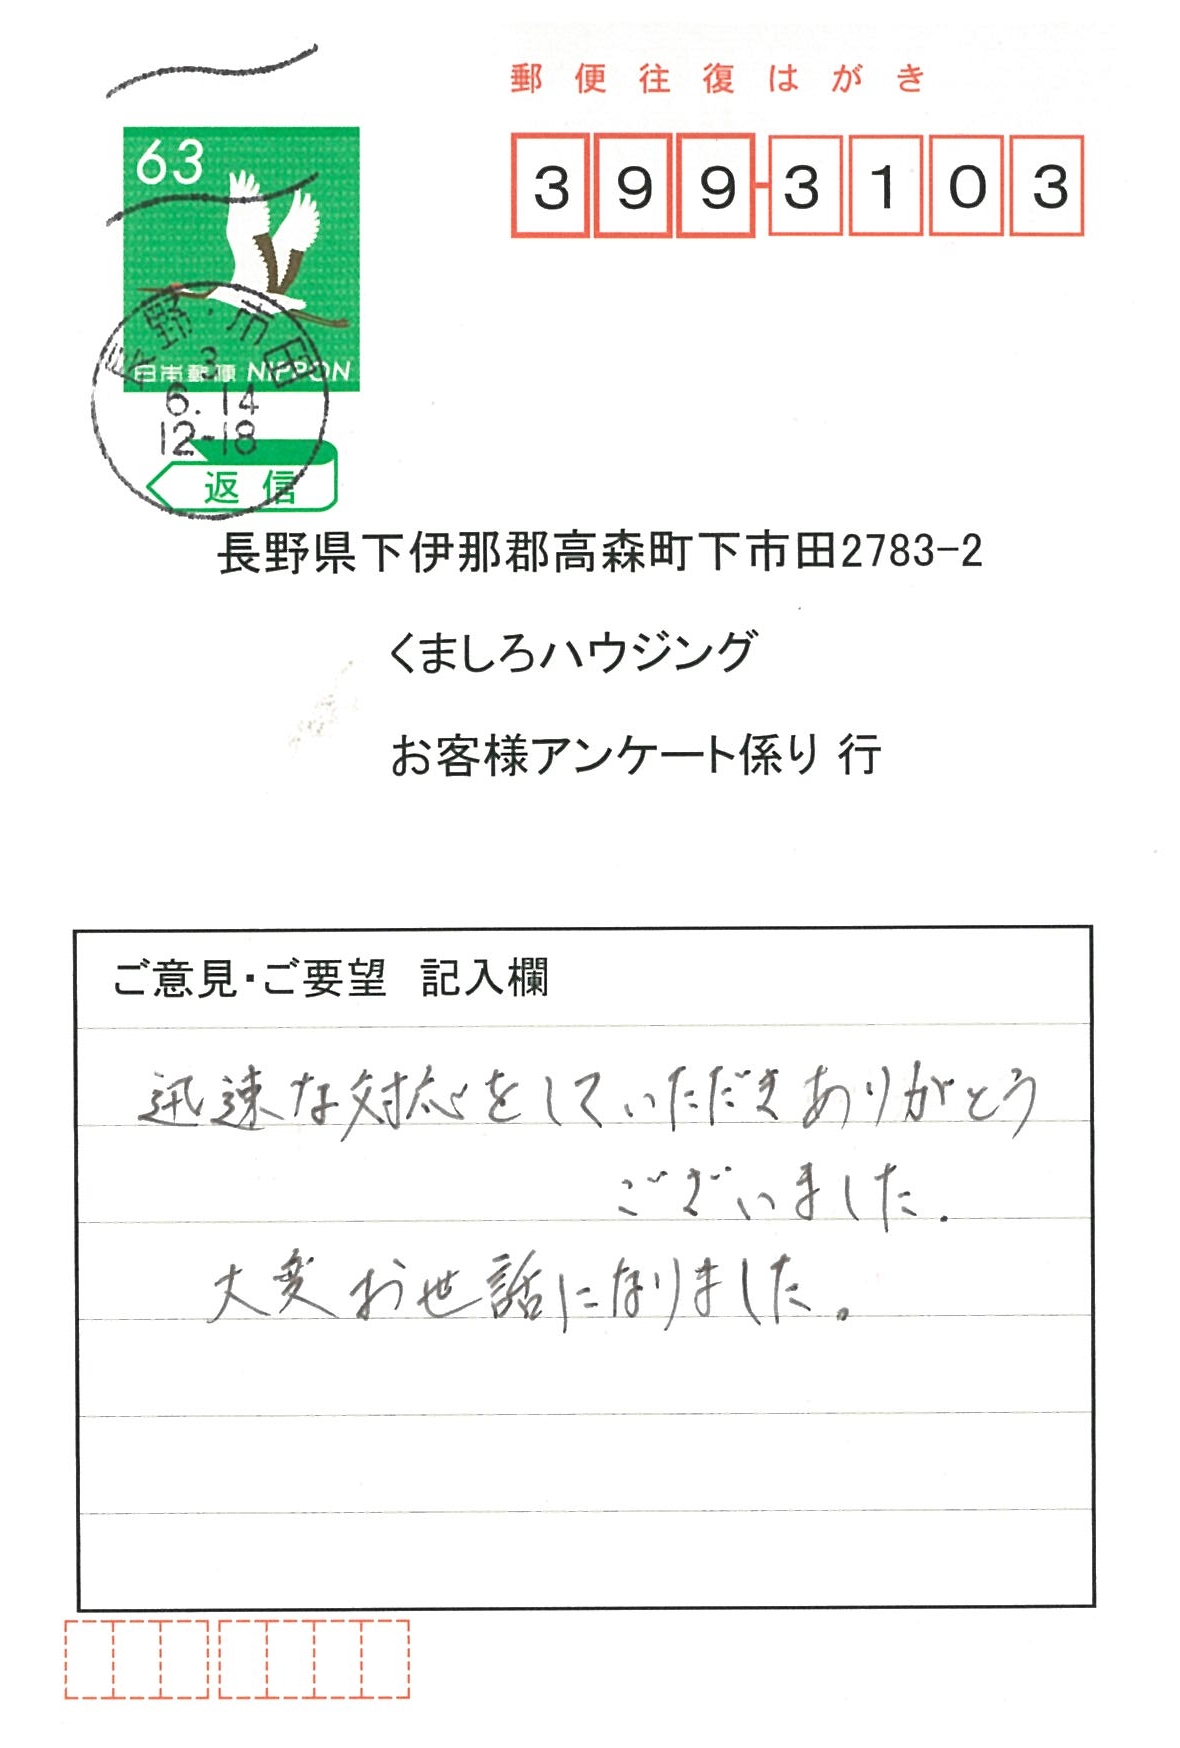 郵便往復はがき
63
399-3103
日本郵便 NIPPON
長野・市田
3
6.14
12-18
返信
長野県下伊那郡高森町下市田2783-2
くましろハウジング
お客様アンケート係り 行
ご意見・ご要望 記入欄
迅速な対応をしていただきありがとう
ございました.
大変お世話になりました。